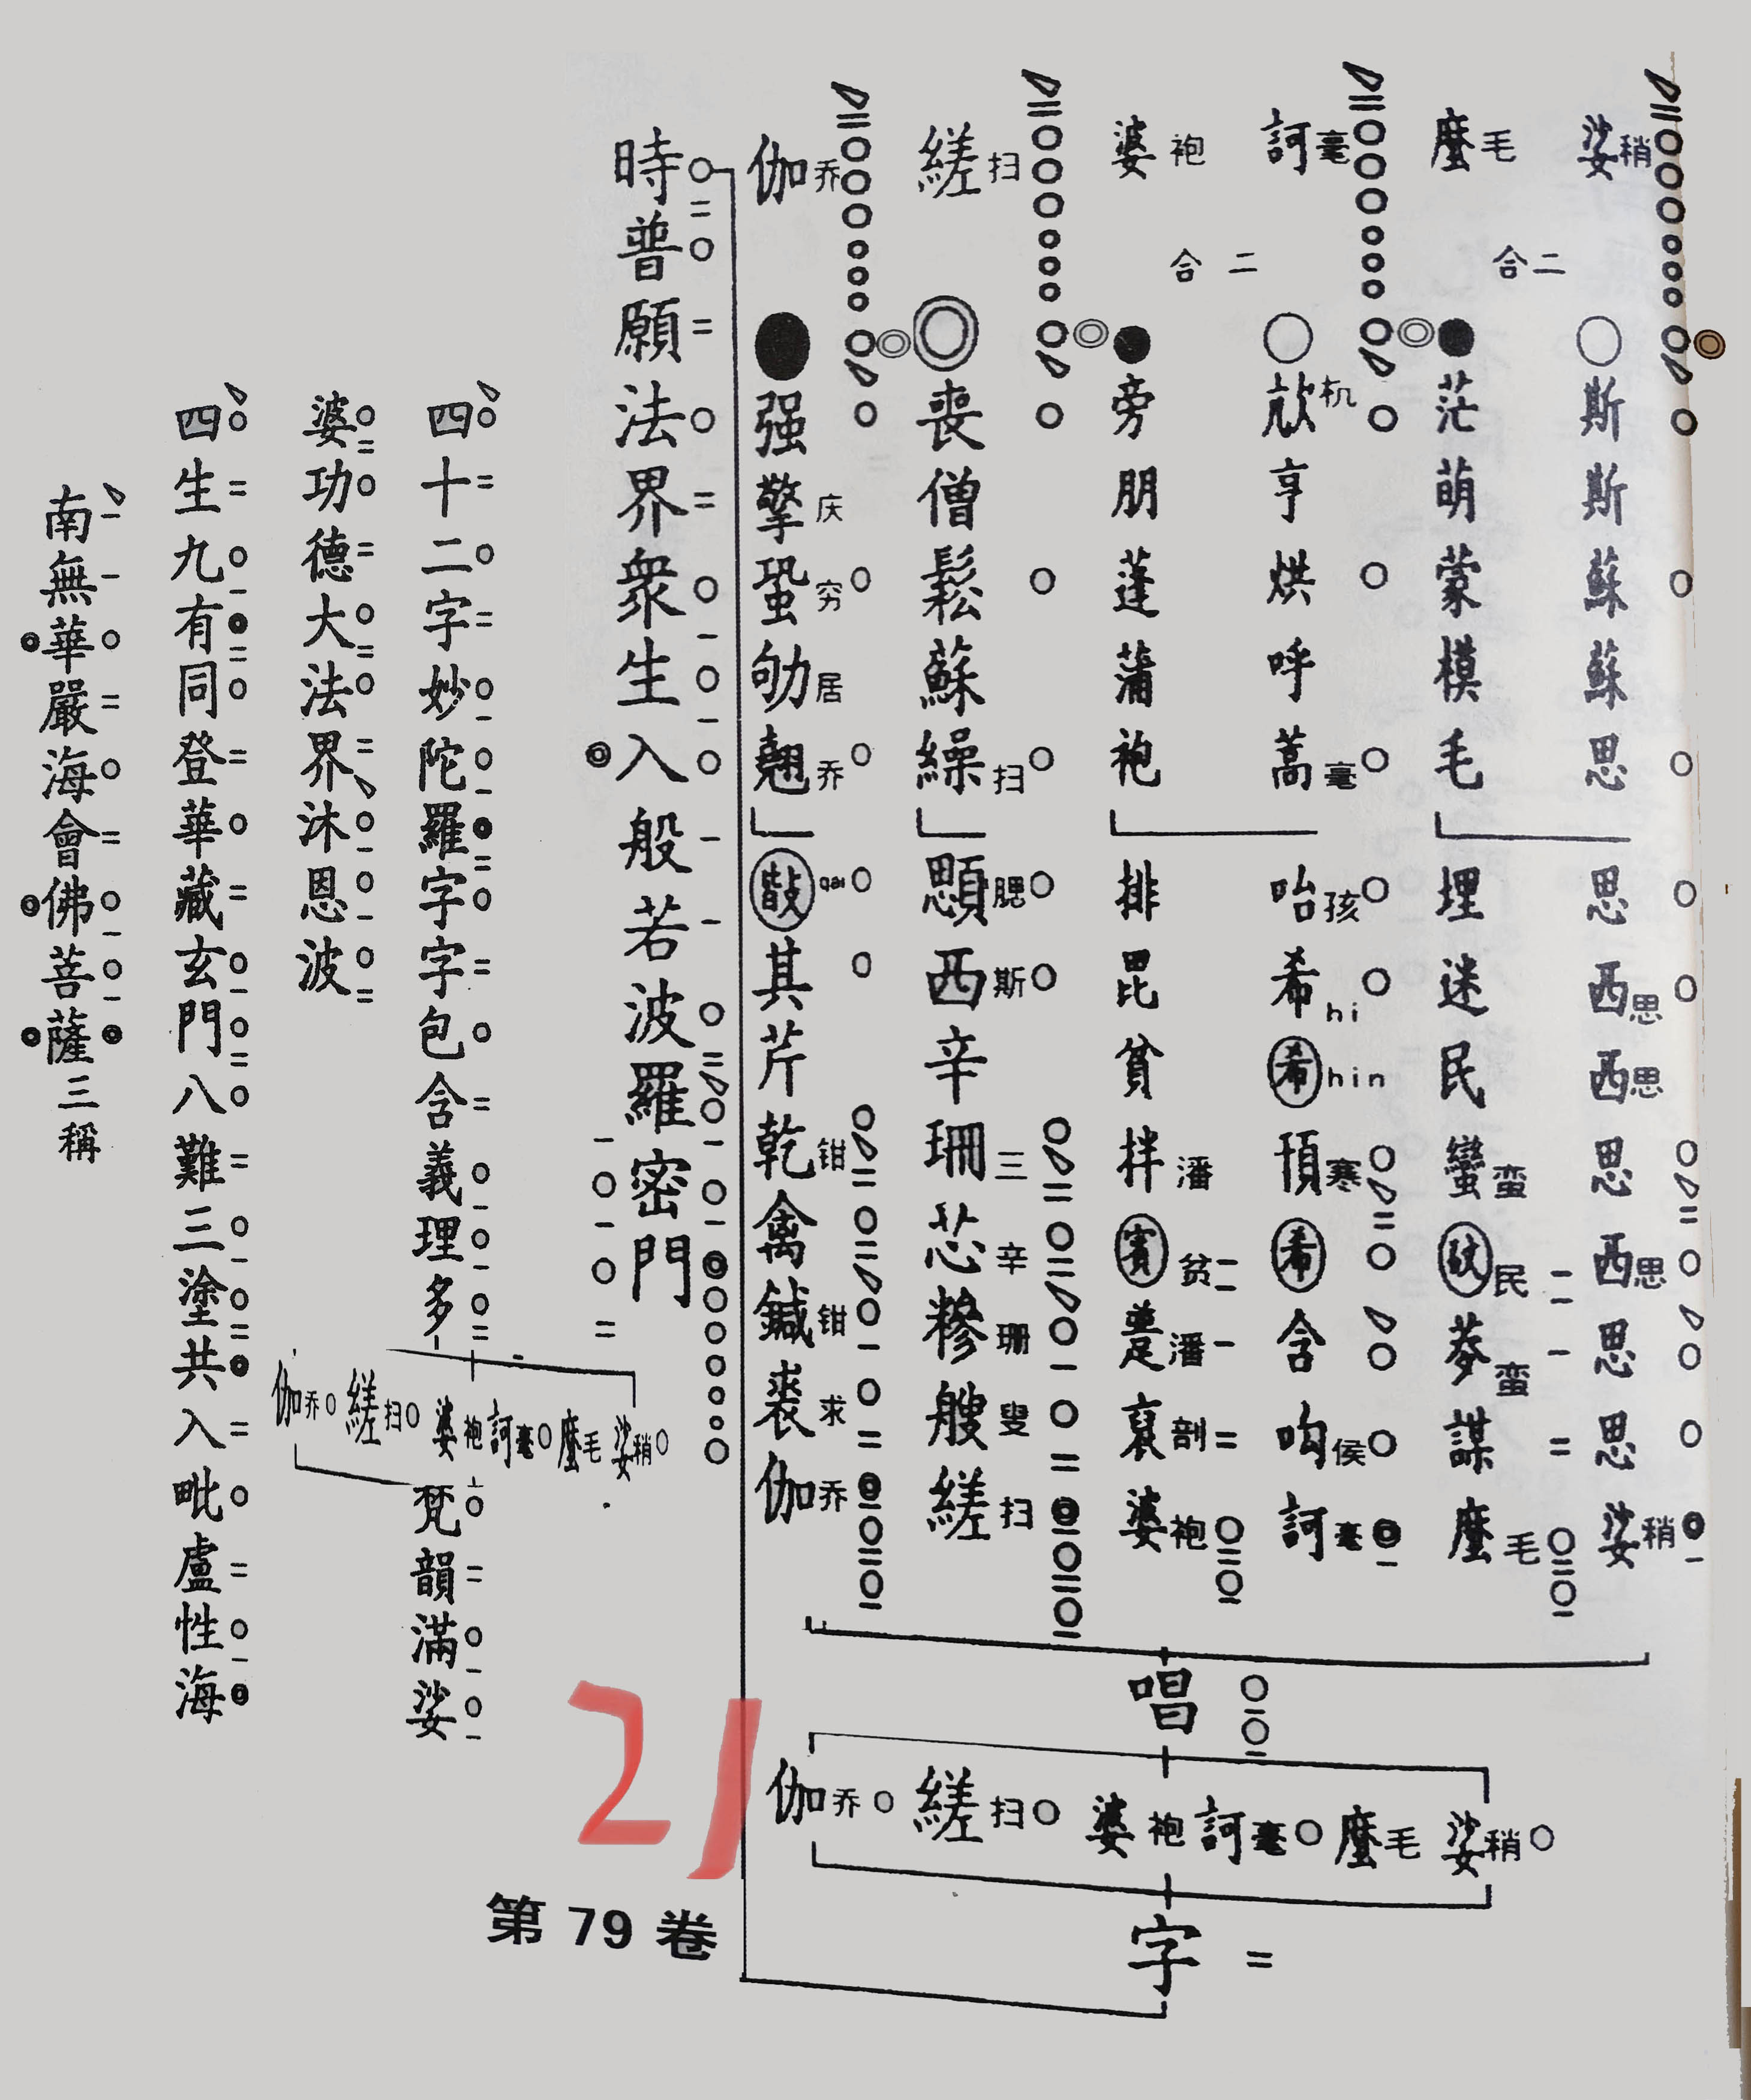 娑稍 二 斯斯蘇蘇思 思西思西思思西思思思娑稍
麼毛 合 茫萌蒙模毛 埋迷民蠻蛮民蓼蛮謀麼毛
訶毫 二 杭亨烘呼蒿毫 咍孩希hi希hin頇寒希含呴侯訶毫
婆袍 合 旁朋蓬蒲袍 排毘貧拌潘賓贫潘裒剖婆袍
縒扫 喪僧鬆蘇繰扫 顋腮西斯辛珊三芯辛糝珊艘叟縒扫
伽乔 强擎庆蛩穷劬居翹乔 qai其芹乾钳禽鍼钳裘求伽乔
唱
娑稍 麼毛 訶毫 婆袍 縒扫 伽乔
字
時普願法界衆生入般若波羅密門
四十二字妙陀羅字字包含義理多
娑稍 麼毛 訶毫 婆袍 縒扫 伽乔
梵韻滿娑
婆功德大法界沐恩波
四生九有同登華藏玄門八難三塗共入毗盧性海
南無華嚴海會佛菩薩三稱
21
第79卷